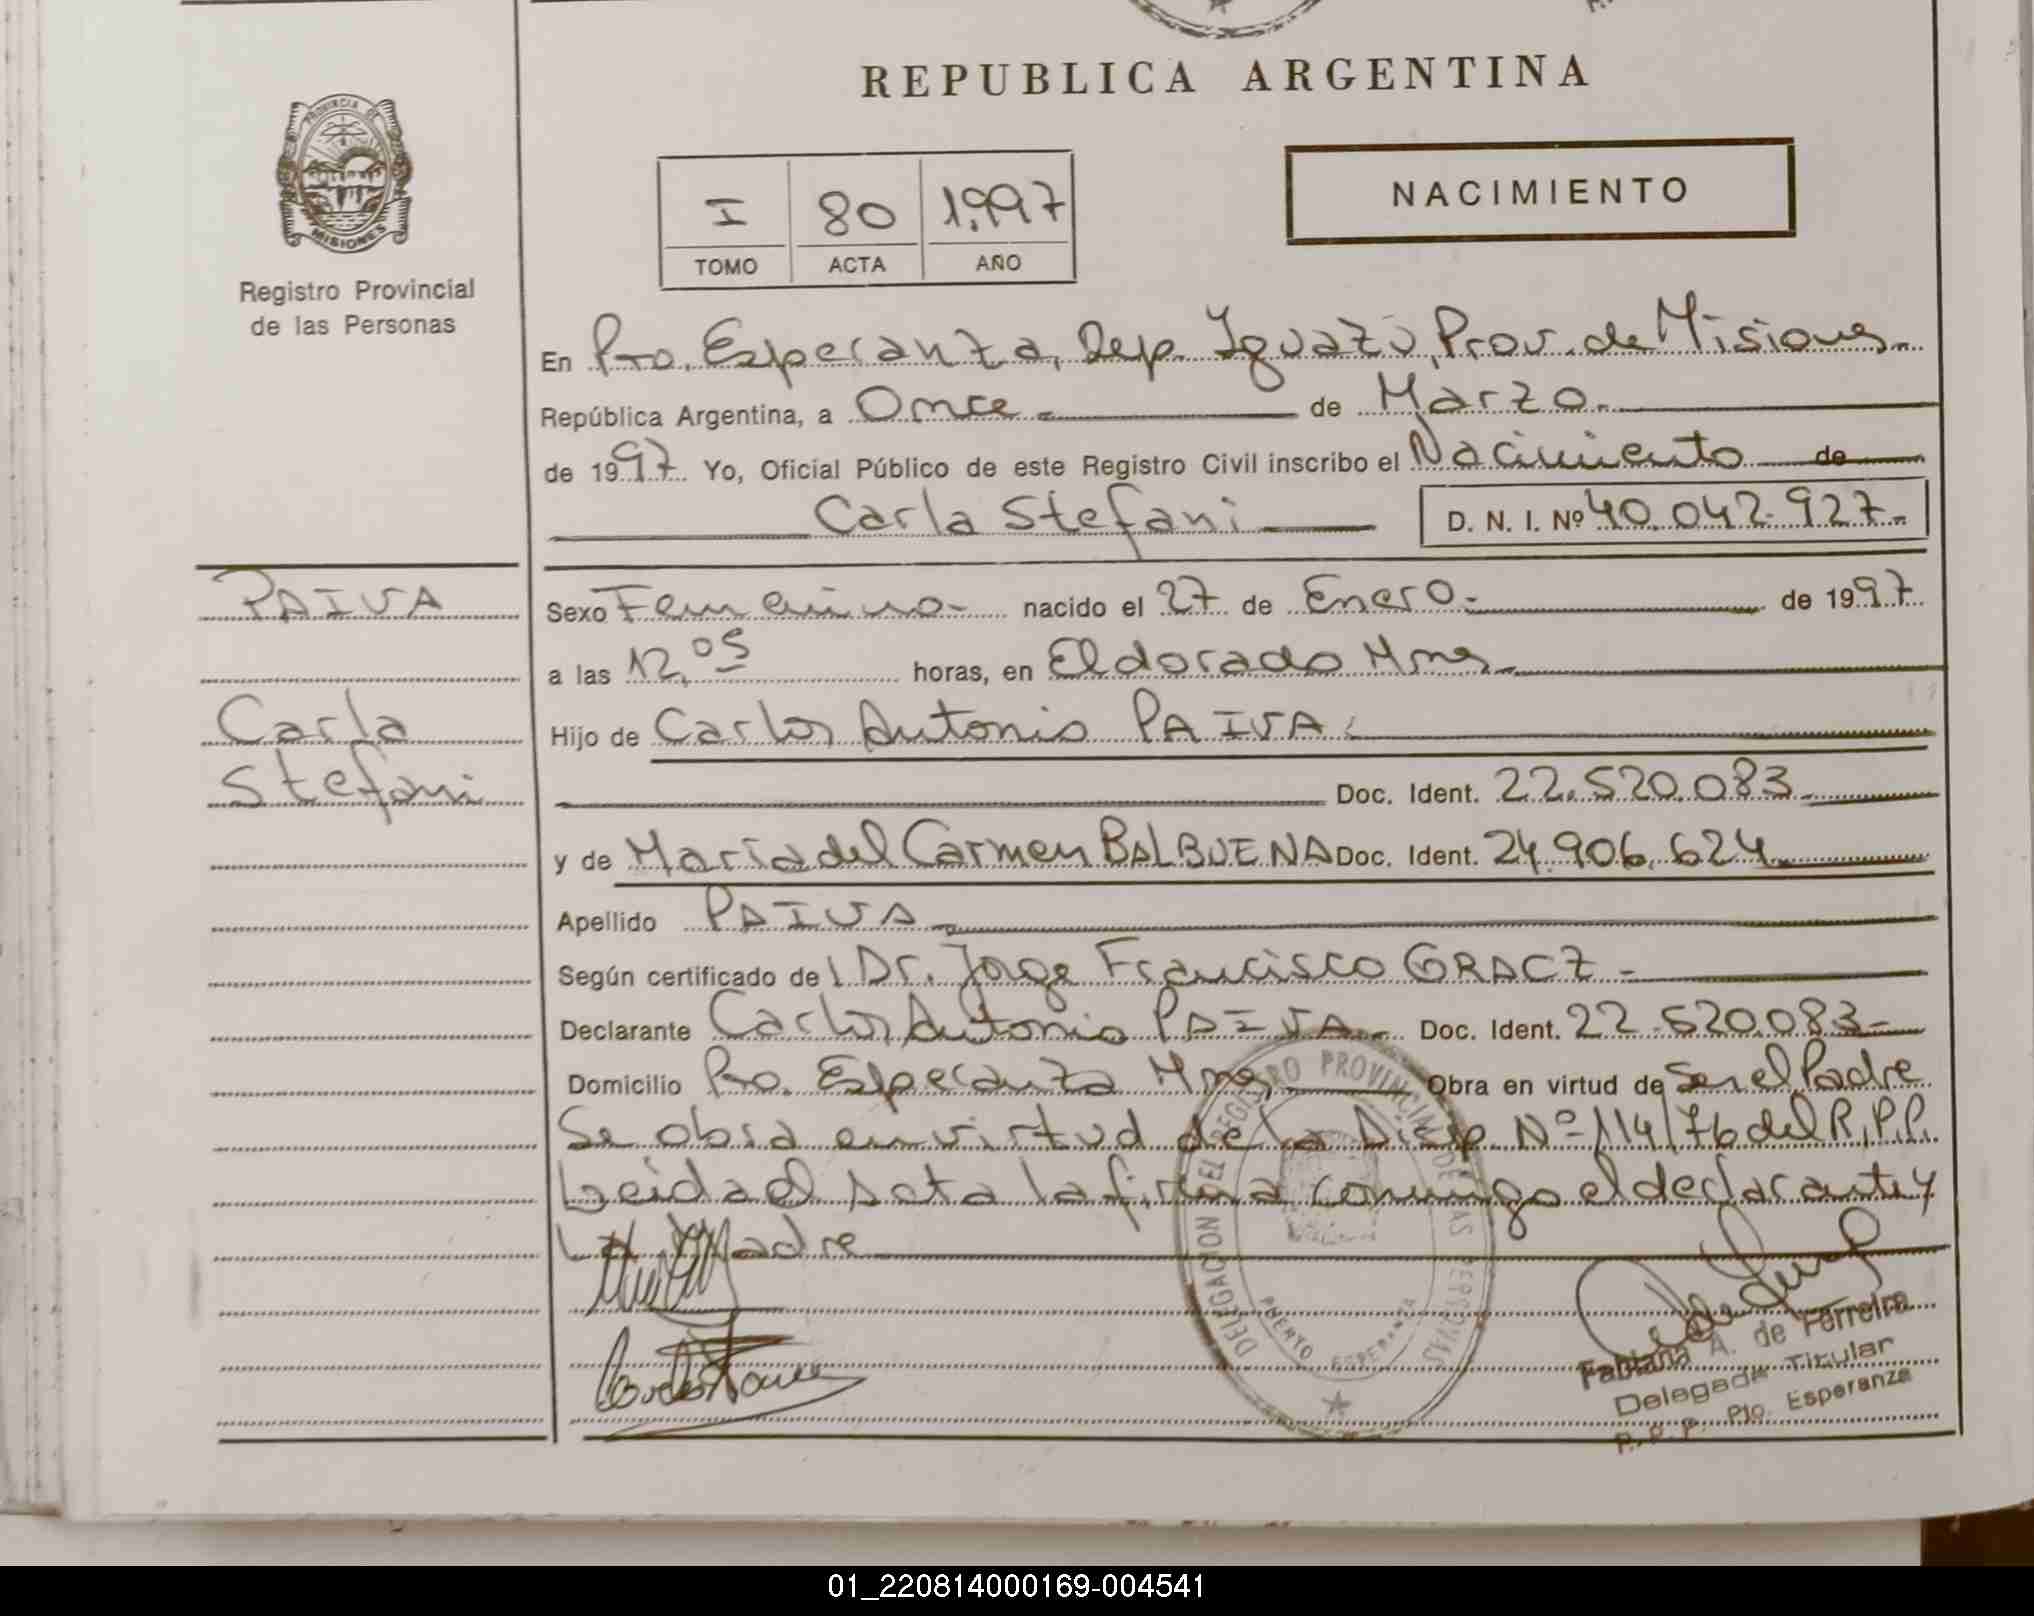 REPUBLICA ARGENTINA
PROVINCIA DE
MISIONES
Registro Provincial
de las Personas
NACIMIENTO
I 80 1.997
TOMO ACTA AÑO
En Pto. Esperanza, Dep. Iguazú, Prov. de Misiones.
República Argentina, a Once de Marzo.
de 1997 Yo, Oficial Público de este Registro Civil inscribo el Nacimiento de
Carla Stefani D. N. I. Nº 40.042.927.
PAIVA
Carla
Stefani
Sexo Femenino. nacido el 27 de Enero. de 1997.
a las 12,05 horas, en Eldorado Mnes.
Hijo de Carlos Antonio PAIVA.
Doc. Ident. 22.520.083
y de Maria del Carmen BALBUENA Doc. Ident. 24.906.624
Apellido PAIVA
Según certificado del Dr. Jorge Francisco GRACZ
Declarante Carlos Antonio PAIVA Doc. Ident. 22.520.083
Domicilio Pto. Esperanza Mnes Obra en virtud de Ser el Padre
Se obra en virtud de la Disp. Nº 114/76 del R.P.P.
Leida el Acta la firma conmigo el declarante y
La Madre
DELEGACION DEL REGISTRO PROVINCIAL DE LAS PERSONAS
PUERTO ESPERANZA
Fabiana A. de Ferreira
Delegada Titular
R. P. P. Pto. Esperanza
01_220814000169-004541